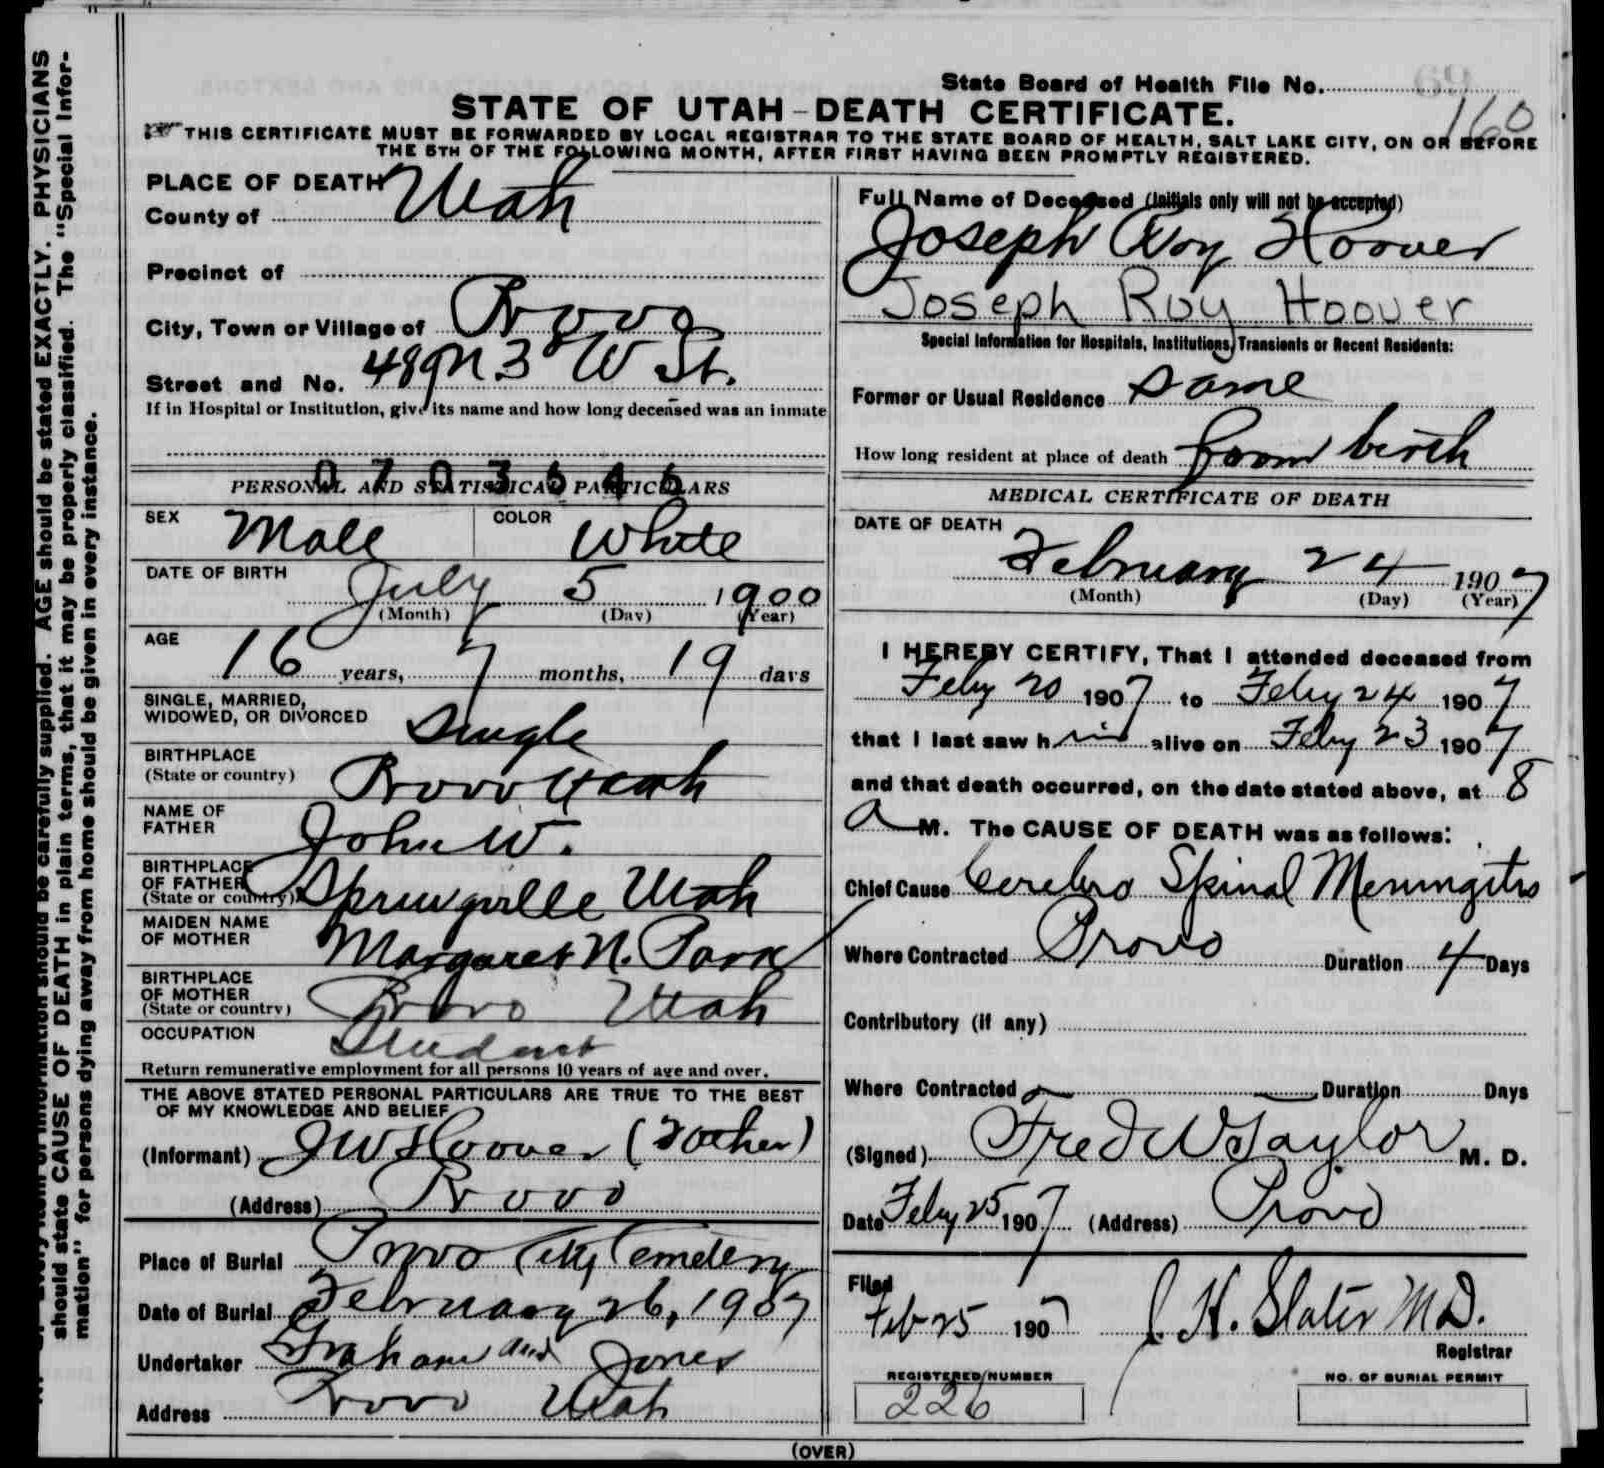 State Board of Health File No. 160
STATE OF UTAH-DEATH CERTIFICATE.
THIS CERTIFICATE MUST BE FORWARDED BY LOCAL REGISTRAR TO THE STATE BOARD OF HEALTH, SALT LAKE CITY, ON OR BEFORE
THE 5TH OF THE FOLLOWING MONTH, AFTER FIRST HAVING BEEN PROMPTLY REGISTERED.
PLACE OF DEATH
County of Utah
Precinct of
City, Town or Village of Provo
Street and No. 489 N 3d W St.
If in Hospital or Institution, give its name and how long deceased was an inmate
PERSONAL AND STATISTICAL PARTICULARS
SEX Male COLOR White
DATE OF BIRTH July 5 1900
(Month) (Day) (Year)
AGE 16 years, 7 months, 19 days
SINGLE, MARRIED,
WIDOWED, OR DIVORCED Single
BIRTHPLACE
(State or country) Provo Utah
NAME OF
FATHER John W.
BIRTHPLACE
OF FATHER
(State or country) Springville Utah
MAIDEN NAME
OF MOTHER Margaret N. Park
BIRTHPLACE
OF MOTHER
(State or country) Provo Utah
OCCUPATION Student
Return remunerative employment for all persons 10 years of age and over.
THE ABOVE STATED PERSONAL PARTICULARS ARE TRUE TO THE BEST
OF MY KNOWLEDGE AND BELIEF
(Informant) J W Hoover (Father)
(Address) Provo
Place of Burial Provo City Cemetery
Date of Burial February 26, 1907
Undertaker Graham and Jones
Address Provo Utah
Full Name of Deceased (Initials only will not be accepted)
Joseph Roy Hoover
Joseph Roy Hoover
Special Information for Hospitals, Institutions, Transients or Recent Residents:
Former or Usual Residence Same
How long resident at place of death from birth
MEDICAL CERTIFICATE OF DEATH
DATE OF DEATH
February 24 1907
(Month) (Day) (Year)
I HEREBY CERTIFY, That I attended deceased from
Feby 20 1907 to Feby 24 1907
that I last saw him alive on Feby 23 1907
and that death occurred, on the date stated above, at 8
a M. The CAUSE OF DEATH was as follows:
Chief Cause Cerebro Spinal Meningitis
Where Contracted Provo Duration 4 Days
Contributory (if any)
Where Contracted Duration Days
(Signed) Fred W Taylor M. D.
Date Feby 25 1907 (Address) Provo
Filed
Feb 25 1907 J. H. Slater M D.
Registrar
REGISTERED NUMBER
226
NO. OF BURIAL PERMIT
(OVER)
should state CAUSE OF DEATH in plain terms, that it may be properly classified. The "Special Infor-
mation" for persons dying away from home should be given in every instance.